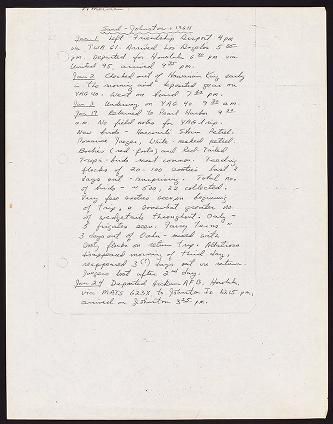 Jan 1 Left Friendship Airport 4 pm
via TWA 61. Arrived Los Angeles 5
pm. Departed for Honolulu 6 pm via
United 95, arrived 9 pm.
Jan 2 Checked out of Hawaiian King early
in the morning and deposited gear on
YAG 40. Went on board 7 pm.
Jan 3 Underway on YAG 40 9 am
Jan 17 Returned to Pearl Harbor 9
a.m. No field notes for YAG trip.
New birds - Harcourts Storm Petrel.
Pomarine Jaeger, White-necked petrel.
Boobies (red foots) and Red Tailed
Trops. birds most common. Feeding
flocks of 20-100 sooties last 2
days out - surprising. Total no.
of birds - ~ 500, 20 collected.
Very few sooties seen on beginning
of trip, a somewhat greater no
of wedgetails throughout. Only
3 frigates seen. Fairy terns
3 days out of Oahu - mixed with
sooty flocks on return trip. Albatross
disappeared morning of third day,
reappeared 3 (?) days out on return.
Jaegers lost after 2nd day.
Jan 24 Departed Hickam AFB, Honolulu,
via MATS 623X to Johnston Is 12:15 pm,
arrived on Johnston 3 pm.